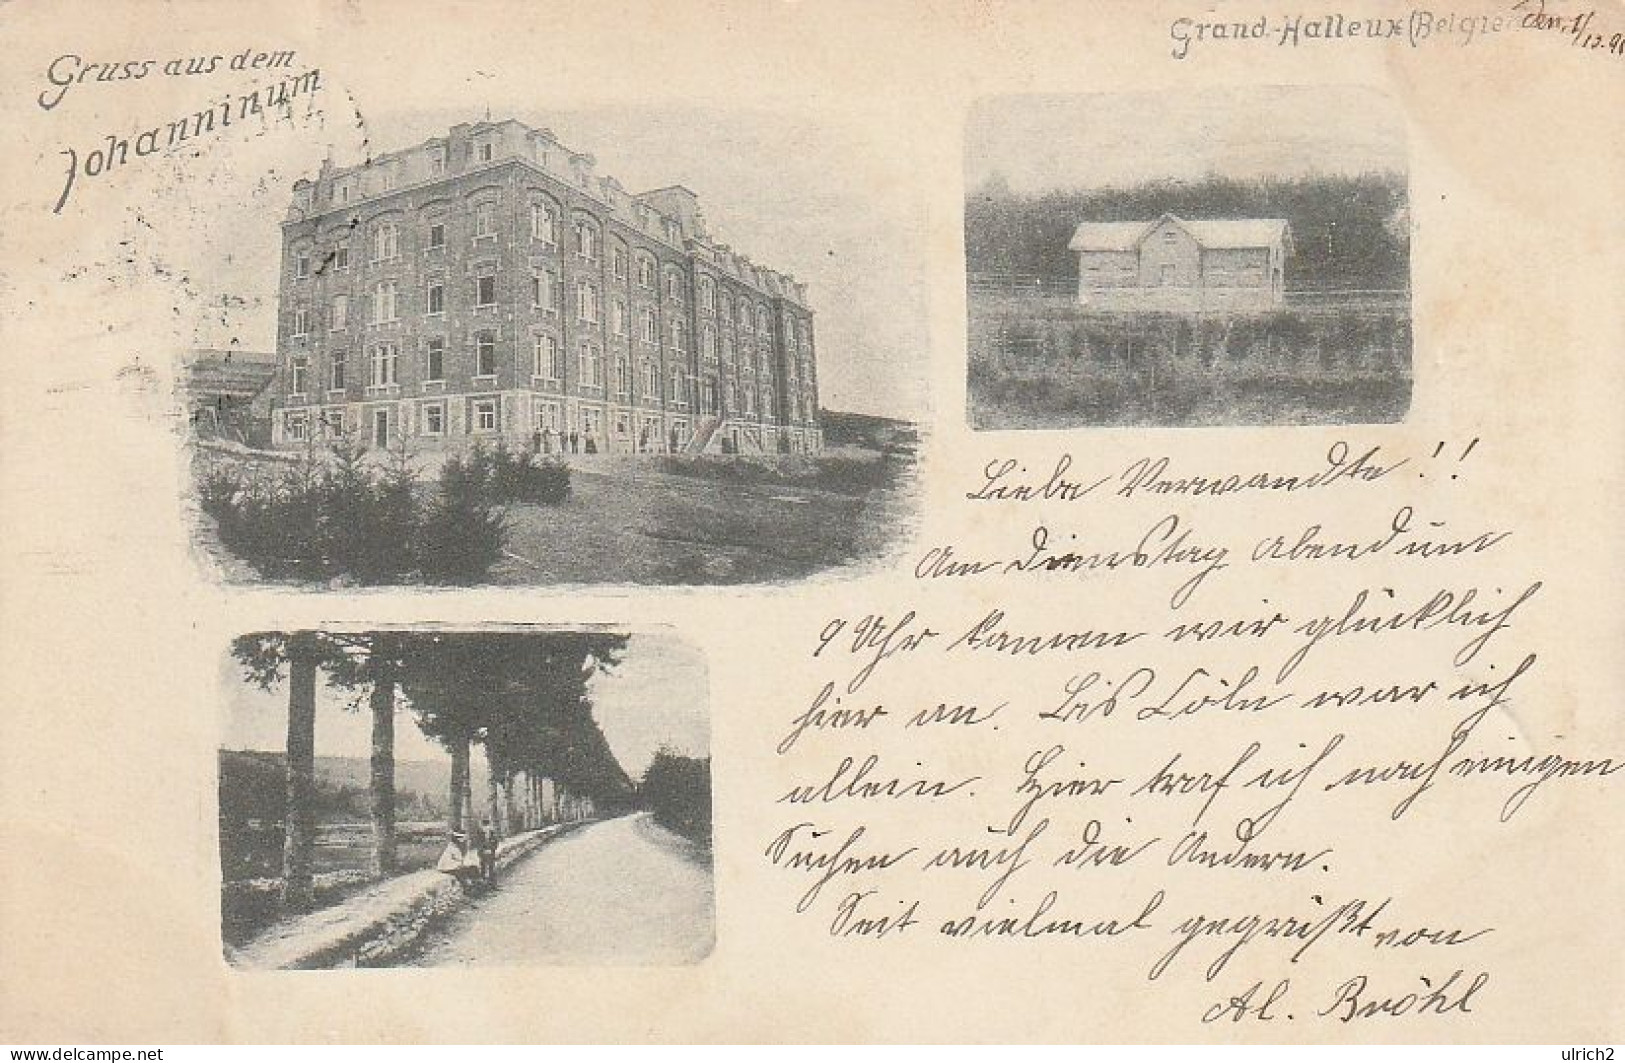 Gruss aus dem
Johanninum
Grand-Halleux (Belgien)
den 1/
Liebe Verwandte!!
Am Dienstag Abend um
9 Uhr kamen wir glücklich
hier an. Bis Cöln war ich
allein. Hier traf ich nach einigen
Suchen auch die Andern.
Seit vielmal gegrüßt von
Al. Bröhl
Delcampe.net
ulrich2